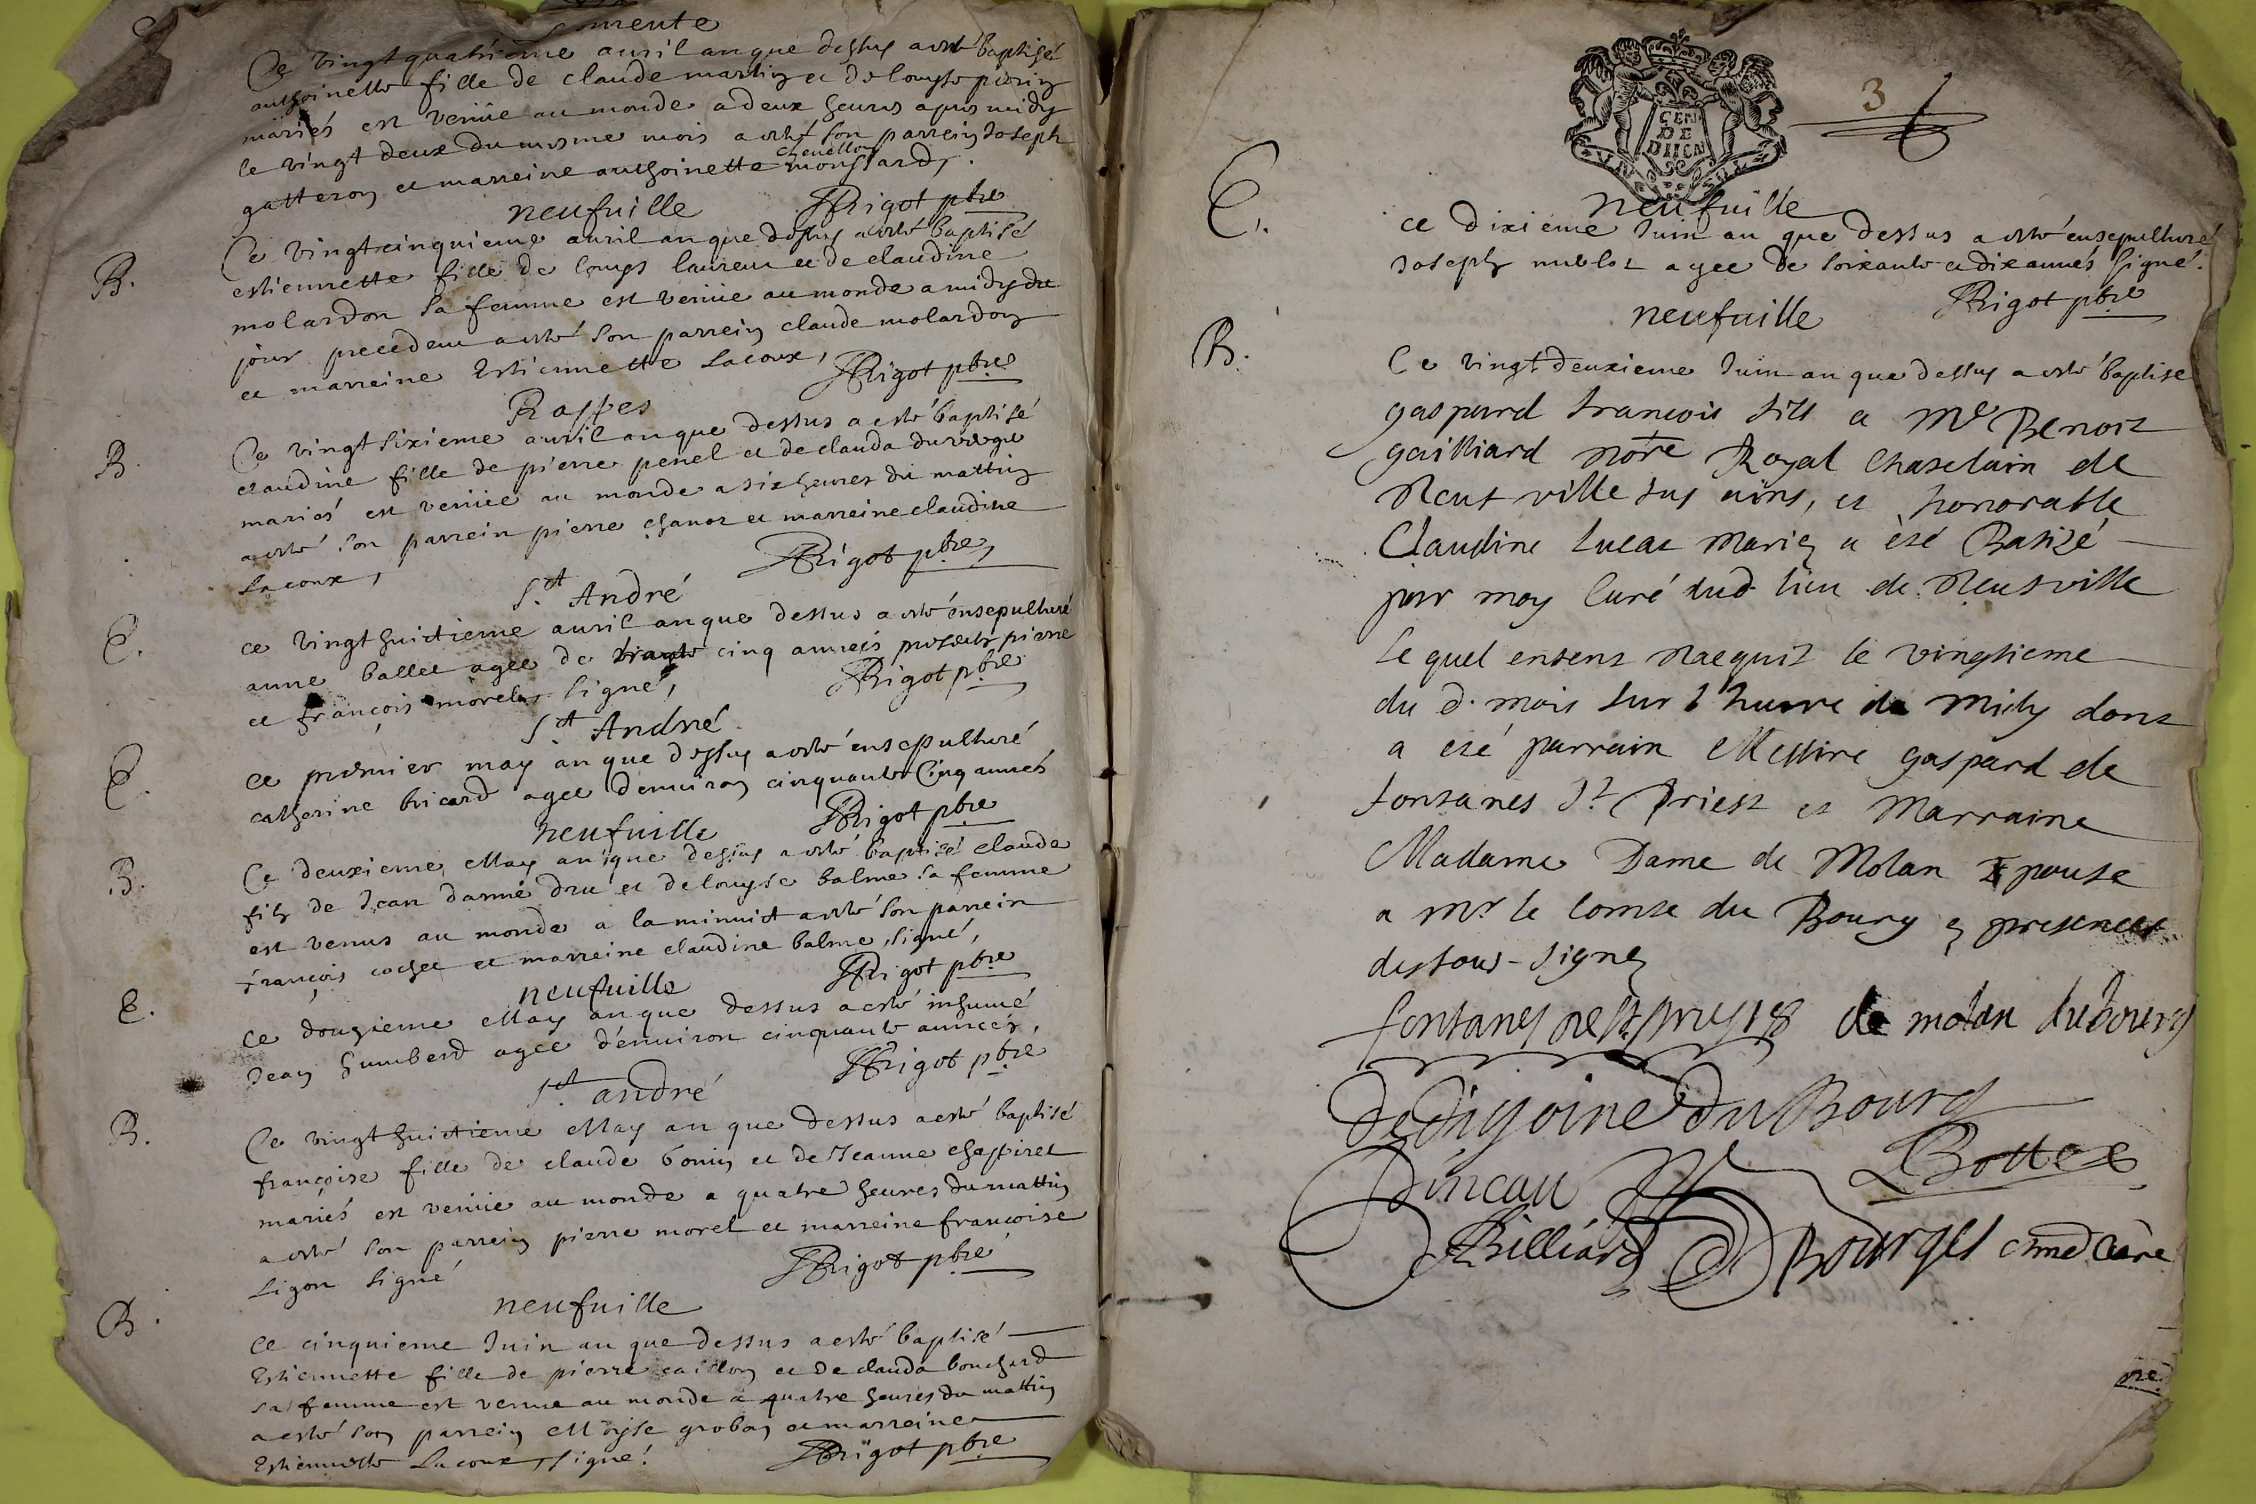 Ce vingt quatrieme auril an que dessus a esté baptisé
anthoinette fille de claude martin et de louyse perin
mariés est venüe au monde a deux heures apres midy
le vingt deux du mesme mois a esté son parrein Joseph
gatteron et marreine anthoinette monssard,
neufuille Rigot pbre
B.
Ce vingtcinquieme auril an que dessus a esté baptisé
estiennette fille de louys laurent et de claudine
molardon sa femme est venüe au monde a midy du
jour precedent a esté son parrein claude molardon
et marreine Estiennette Lacoux,
Rigot pbre
B.
Ce vingt sixieme auril an que dessus a esté baptisé
claudine fille de pierre penel et de clauda
mariés est venüe au monde a six heures du mattin
a esté son parrein pierre chanoz et marreine claudine
Lacoux,
Rigot pbre
St. André
E.
ce vingt huictieme auril an que dessus a esté ensepulturé
anne ballet agee de cinq années presents pierre
et françois morel signé,
Rigot pbre
St. André
E.
ce premier may an que dessus a esté ensepulturé
catherine bricard agee d'enuiron cinquante Cinq années
neufuille Rigot pbre
B.
Ce deuxieme May an que dessus a esté baptisé claude
fils de Jean damné dru et de louyse balme sa femme
est venus au monde a la minuict a esté son parrein
françois cochet et marreine claudine balme, signé,
neufuille Rigot pbre
E.
ce douzieme May an que dessus a esté inhumé
Jean humberd agee d'enuiron cinquante années,
Rigot pbre
St. andré
B.
Ce vingt huictieme May an que dessus a esté baptisé
françoise fille de claude bonin et de Jeanne chappiret
mariés est venüe au monde a quatre heures du mattin
a esté son parrein pierre morel et marreine françoise
Ligon signé
Rigot pbre
neufuille
B.
Ce cinquieme Juin an que dessus a esté baptisé
Estiennette fille de pierre caillon et de clauda bouchard
sa femme est venue au monde a quatre heures du mattin
a esté son parrein Moyse grobon et marreine
Estiennette Lacoux, signé!
Rigot pbre
3
GEN
DE
DIION
neufuille
E.
ce dixieme Juin an que dessus a esté ensepulturé
Joseph nublot agee de soixante et dix années signé.
neufuille Rigot pbre
B.
Ce vingt deuxieme Juin an que dessus a esté baptise
gaspard françois fils a Me Benoit
gailliard nore Royal Chatelain de
Neufville sus ains, et honorable
Claudine Lucat Mariez a été Batizé
par moy Curé dud. lieu de Neufville
le quel enfent Naequit le vingtieme
du d. mois sur l'heure de Midy dont
a été parrain Messire Gaspard de
fontanes St. Priest et Marraine
Madame Dame de Molan Epouse
a Mr. le Comte du Bourg presences
dessous-signez
fontanes de st priest de molan dubourg
de digoine du Bourg
Duncau Bottex
Billiard Bourges curé